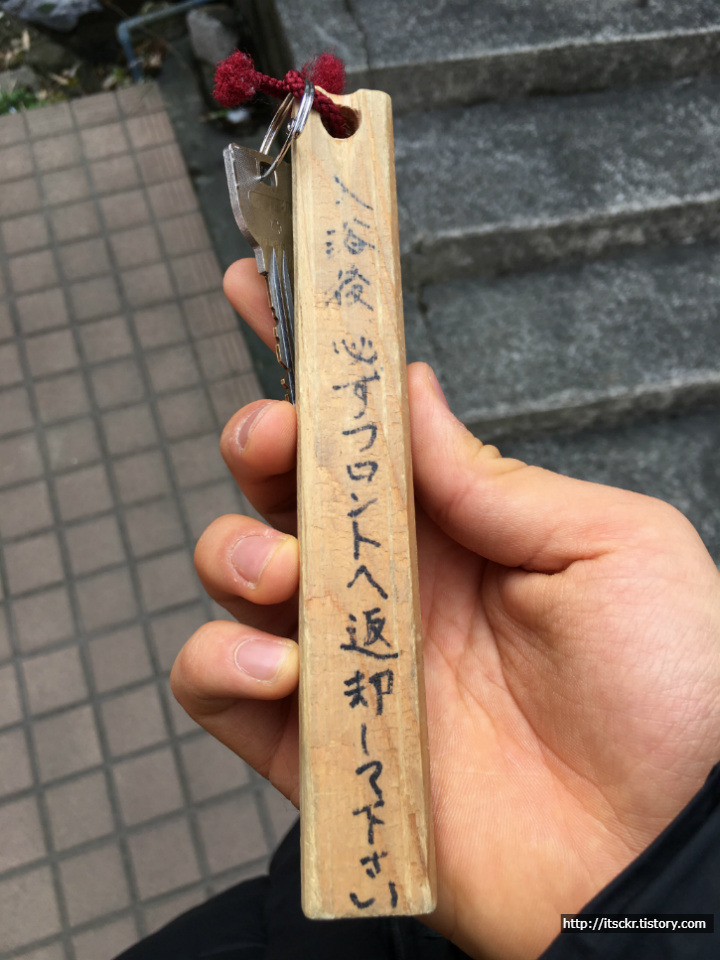 入浴後 必ずフロントへ返却して下さい
http://itsckr.tistory.com